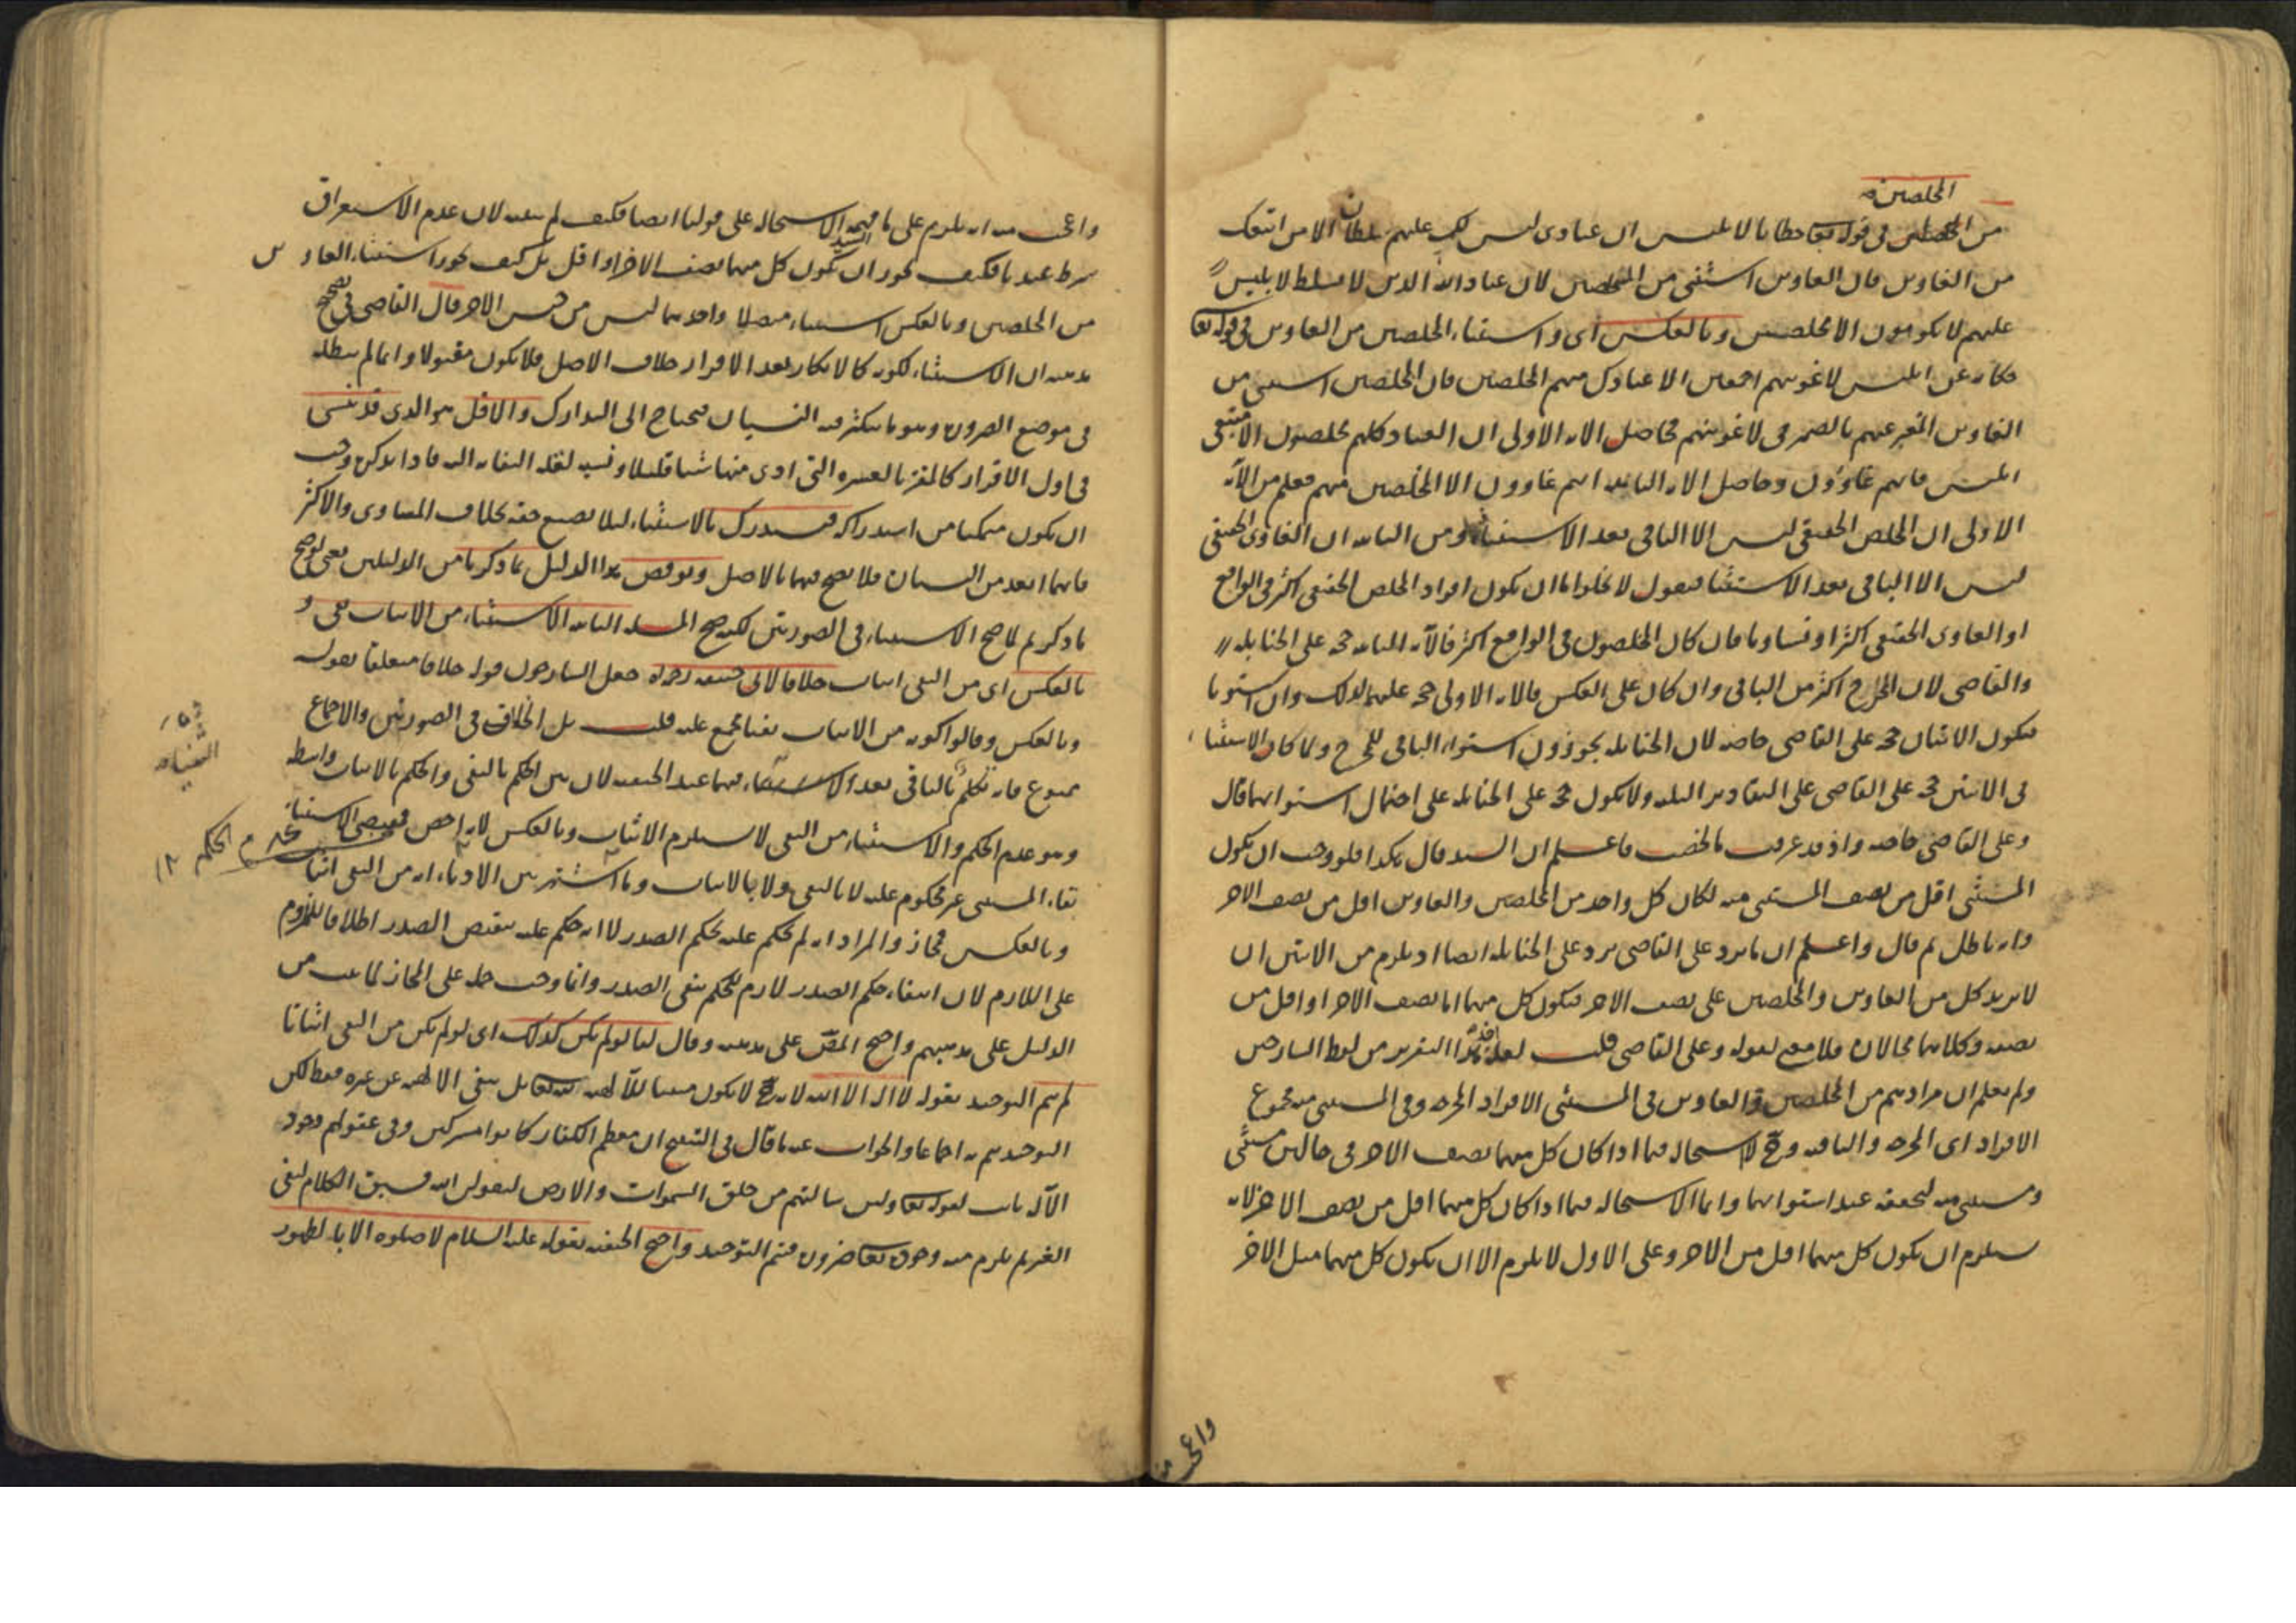 المخلصين
من المخلصين في قوله تعا خطابا لابليس ان عبادى ليس لك عليهم سلطان الا من اتبعك
من الغاوين فان الغاوين استثنى من المخلصين لان عباد الله الذين لا تسلط لابليس
عليهم لا يكونون الا مخلصين وبالعكس اى واستثناء المخلصين من الغاوين في قوله تعا
حكاية عن ابليس لاغوينهم اجمعين الا عبادك منهم المخلصين فان المخلصين استثنى من
الغاوين المعبر عنهم بالضمير فى لاغوينهم فحاصل الاية الاولى ان العباد كلهم مخلصون الا متبعى
ابليس فانهم غاوون وحاصل الاية الثانية انهم غاوون الا المخلصين منهم فعلم من الآية
الاولى ان المخلص الحقيقى ليس الا الباقى بعد الاستثناء ومن الثانية ان الغاوى الحقيقى
ليس الا الباقى بعد الاستثنا فنقول لا يخلو اما ان يكون افراد المخلص الحقيقى اكثر فى الواقع
او الغاوى الحقيقى اكثر او تساويا فان كان المخلصون فى الواقع اكثر فالآية الثانية حجة على الحنابلة
والقاضى لان المخرج اكثر من الباقى وان كان على العكس فالاية الاولى حجة عليهما لذلك وان استويا
فيكون الايتان حجة على القاضى خاصة لان الحنابلة يجوزون استواء الباقى للمخرج ولما كان الاستثنا
فى الايتين حجة على القاضى على التقادير الثلثة ولا يكون حجة على الحنابلة على احتمال استوايهما قال
وعلى القاضى خاصة واذ قد عرفت ما لخصت فاعلم ان السيد قال هكذا فلو وجب ان يكون
المستثنى اقل من نصف المستثنى منه لكان كل واحد من المخلصين والغاوين اقل من نصف الاخر
وانه باطل ثم قال واعلم ان ما يرد على القاضى يرد على الحنابلة ايضا اذ يلزم من الايتين ان
لا يزيد كل من الغاوين والمخلصين على نصف الاخر فيكون كل منهما اما نصف الاخر او اقل من
نصفه وكلاهما محالان فلا معنى لقوله وعلى القاضى قلت لعله اخذ هذا التقرير من لفظ الشارحين
ولم يعلم ان مرادهم من المخلصين والغاوين فى المستثنى الافراد المخرجة وفى المستثنى منه مجموع
الافراد اى المخرجة والباقية وح لا استحالة فيما اذا كان كل منهما نصف الاخر فى حالين مستثنى
ومستثنى منه لتحققه عند استوايهما وانما الاستحالة فيما اذا كان كل منهما اقل من نصف الاخر لانه
يستلزم ان يكون كل منهما اقل من الاخر وعلى الاول لا يلزم الا ان يكون كل منهما مثل الاخر
واعجب منه انه يلزم على ما فهمه السيد الاستحالة على قولنا ايضا فكيف لم يتنبه لان عدم الاستغراق
شرط عندنا فكيف يجوز ان يكون كل منهما نصف الاخر او اقل بل كيف يجوز استثناء الغاوين
من المخلصين وبالعكس استثناء متصلا واحدهما ليس من جنس الاخر قال القاضى فى تصحيح
مذهبه ان الاستثناء لكونه كالانكار بعد الاقرار خلاف الاصل فلا يكون مقبولا وانما لم نبطله
فى موضع الضرورة وهو ما يكثر فيه النسيان فيحتاج الى التدارك والاقل هو الذى قد ينسى
فى اول الاقرار كالمقر بالعشرة التى ادى منها شيا قليلا ونسيه لقلة التفاته اليه فاذا تذكره وجب
ان يكون متمكنا من استدراكه فيستدرك بالاستثناء ليلا يضيع حقه بخلاف المساوى والاكثر
فانهما ابعد من النسيان فلا يصح فيهما بالاصل ونوقض هذا الدليل بما ذكرنا من الدليلين يعنى لو صح
ما ذكرتم لما صح الاستثناء فى الصورتين لكنه صح المسئلة الثانية الاستثناء من الاثبات نفى و
بالعكس اى من النفى اثبات خلافا لابى حنيفة رحمه جعل الشارحون قوله خلافا متعلقا بقوله
وبالعكس وقالوا كونه من الاثبات نفيا مجمع عليه قلت بل الخلاف فى الصورتين والاجماع
ممنوع فانه تكلم بالباقى بعد الاستثناء فيهما عند الحنفية لان بين الحكم بالنفى والحكم بالاثبات واسطة
وهو عدم الحكم والاستثناء من النفى لا يستلزم الاثبات وبالعكس لانه اخص فمقتضى الاستثنا
بقاء المستثنى غير محكوم عليه لا بالنفى ولا بالاثبات وما اشتهر بين الادباء انه من النفى اثبات
وبالعكس فمجاز والمراد انه لم يحكم عليه بحكم الصدر لا انه حكم عليه بنقيض الصدر اطلاقا للملزوم
على اللازم لان انتفاء حكم الصدر لازم للحكم بنفى الصدر وانما وجب حمله على المجاز لما ثبت من
الدليل على مذهبهم واحتج المص على مذهبه وقال لنا لو لم يكن كذلك اى لو لم يكن من النفى اثباتا
لم يتم التوحيد بقوله لا اله الا الله لانه ح لا يكون مثبتا للالهية لله تعا بل ينفى الالهية عن غيره فقط لكن
التوحيد يتم به اجماعا والجواب عنه ما قال فى التنقيح ان معظم الكفار كانوا مشركين وفى عقولهم وجود
الآله ثابت لقوله تعا ولين سالتهم من خلق السموات والارض ليقولن الله فسيق الكلام لنفى
الغير ثم يلزم منه وجوده تعا ضرورة فيتم التوحيد واحتج الحنفية بقوله عليه السلام لا صلوة الا بطهور
واعجب